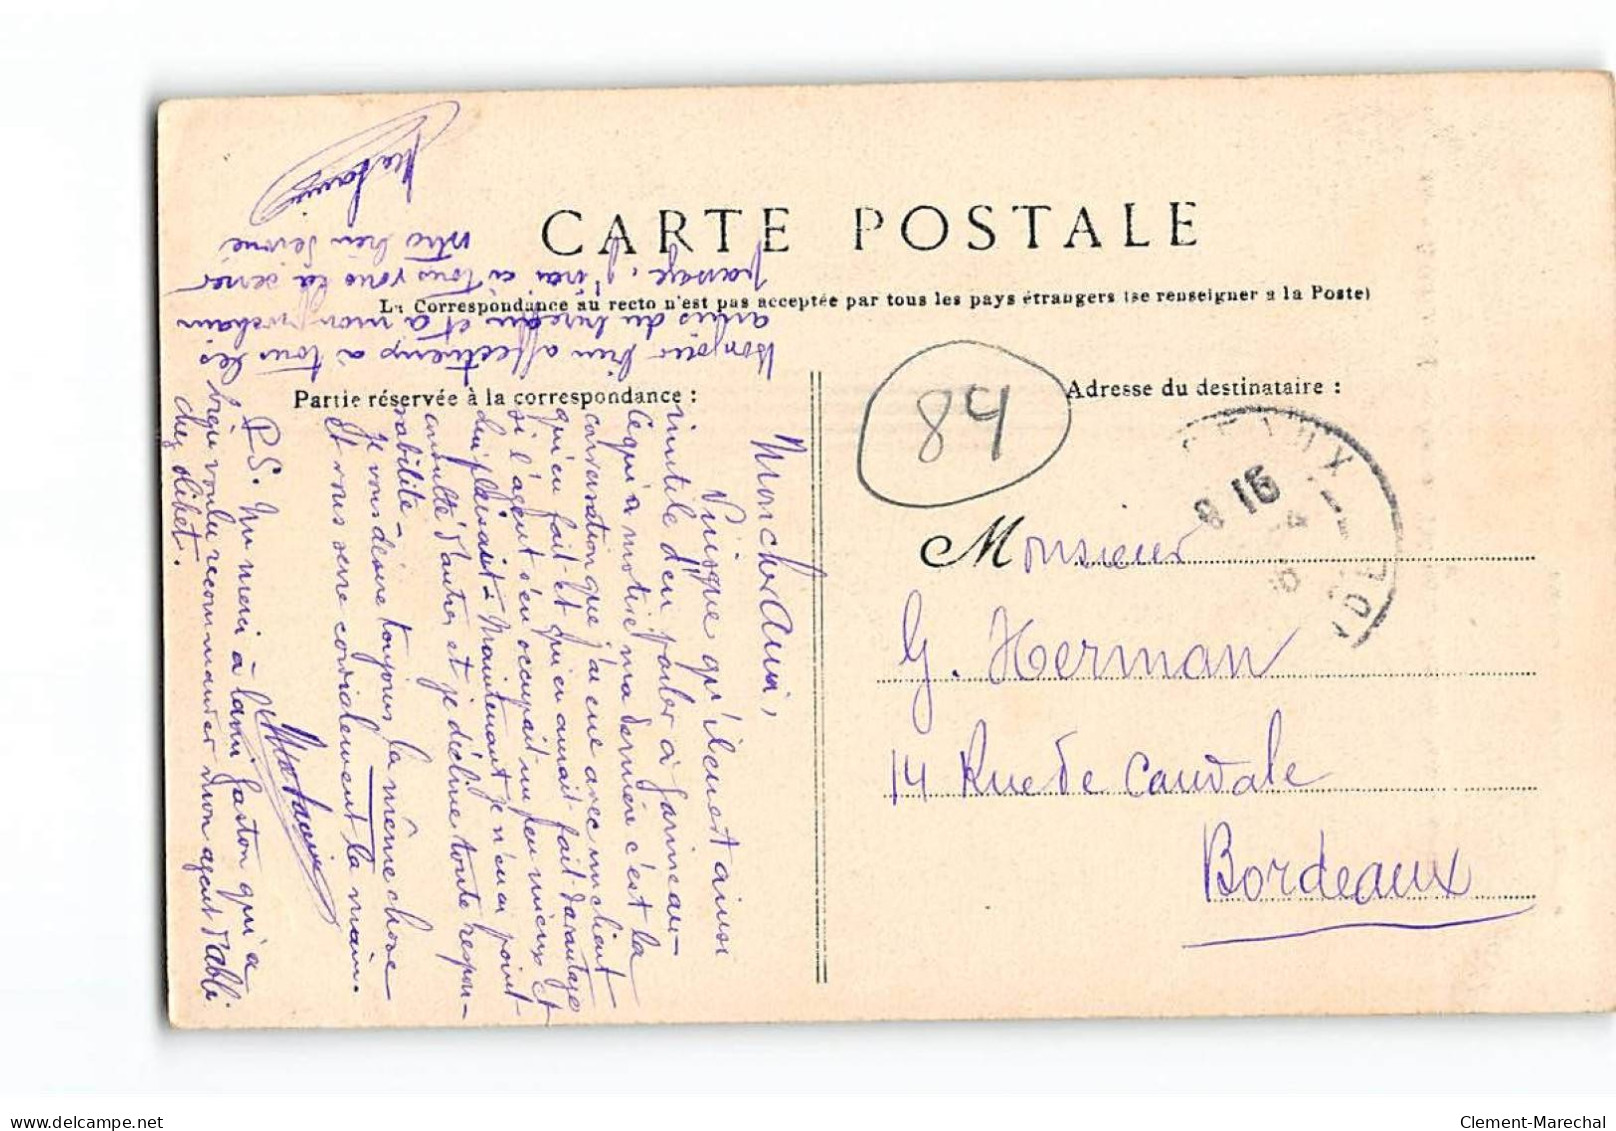 CARTE POSTALE
La Correspondance au recto n'est pas acceptée par tous les pays étrangers (se renseigner à la Poste)
Partie réservée à la correspondance :
Adresse du destinataire :
84
8 15
Monsieur
G. Herman
14 Rue de Candale
Bordeaux
Mon cher Ami,
Puisque qu'il en est ainsi
inutile d'en parler à Garineau-
Ce qui a motivé ma dernière c'est la
conversation que j'ai eue avec un client
qu'en fait et qui en aurait fait davantage
si l'agent s'en occupait un peu mieux et
lui plaisait - Maintenant je n'en ai point
consulté d'autres et je décline toute respon-
sabilité -
Je vous désire toujours la même chose
et vous serre cordialement la main.
P.S. Un merci à l'ami Gaston qui a
bien voulu recommander mon agent d'Albi
chez
Bonjour bien affectueux à tous les
amis du bureau et à mon prochain
passage, j'irai à tous vous la serrer
votre bien dévoué
delcampe.net
Clement-Marechal